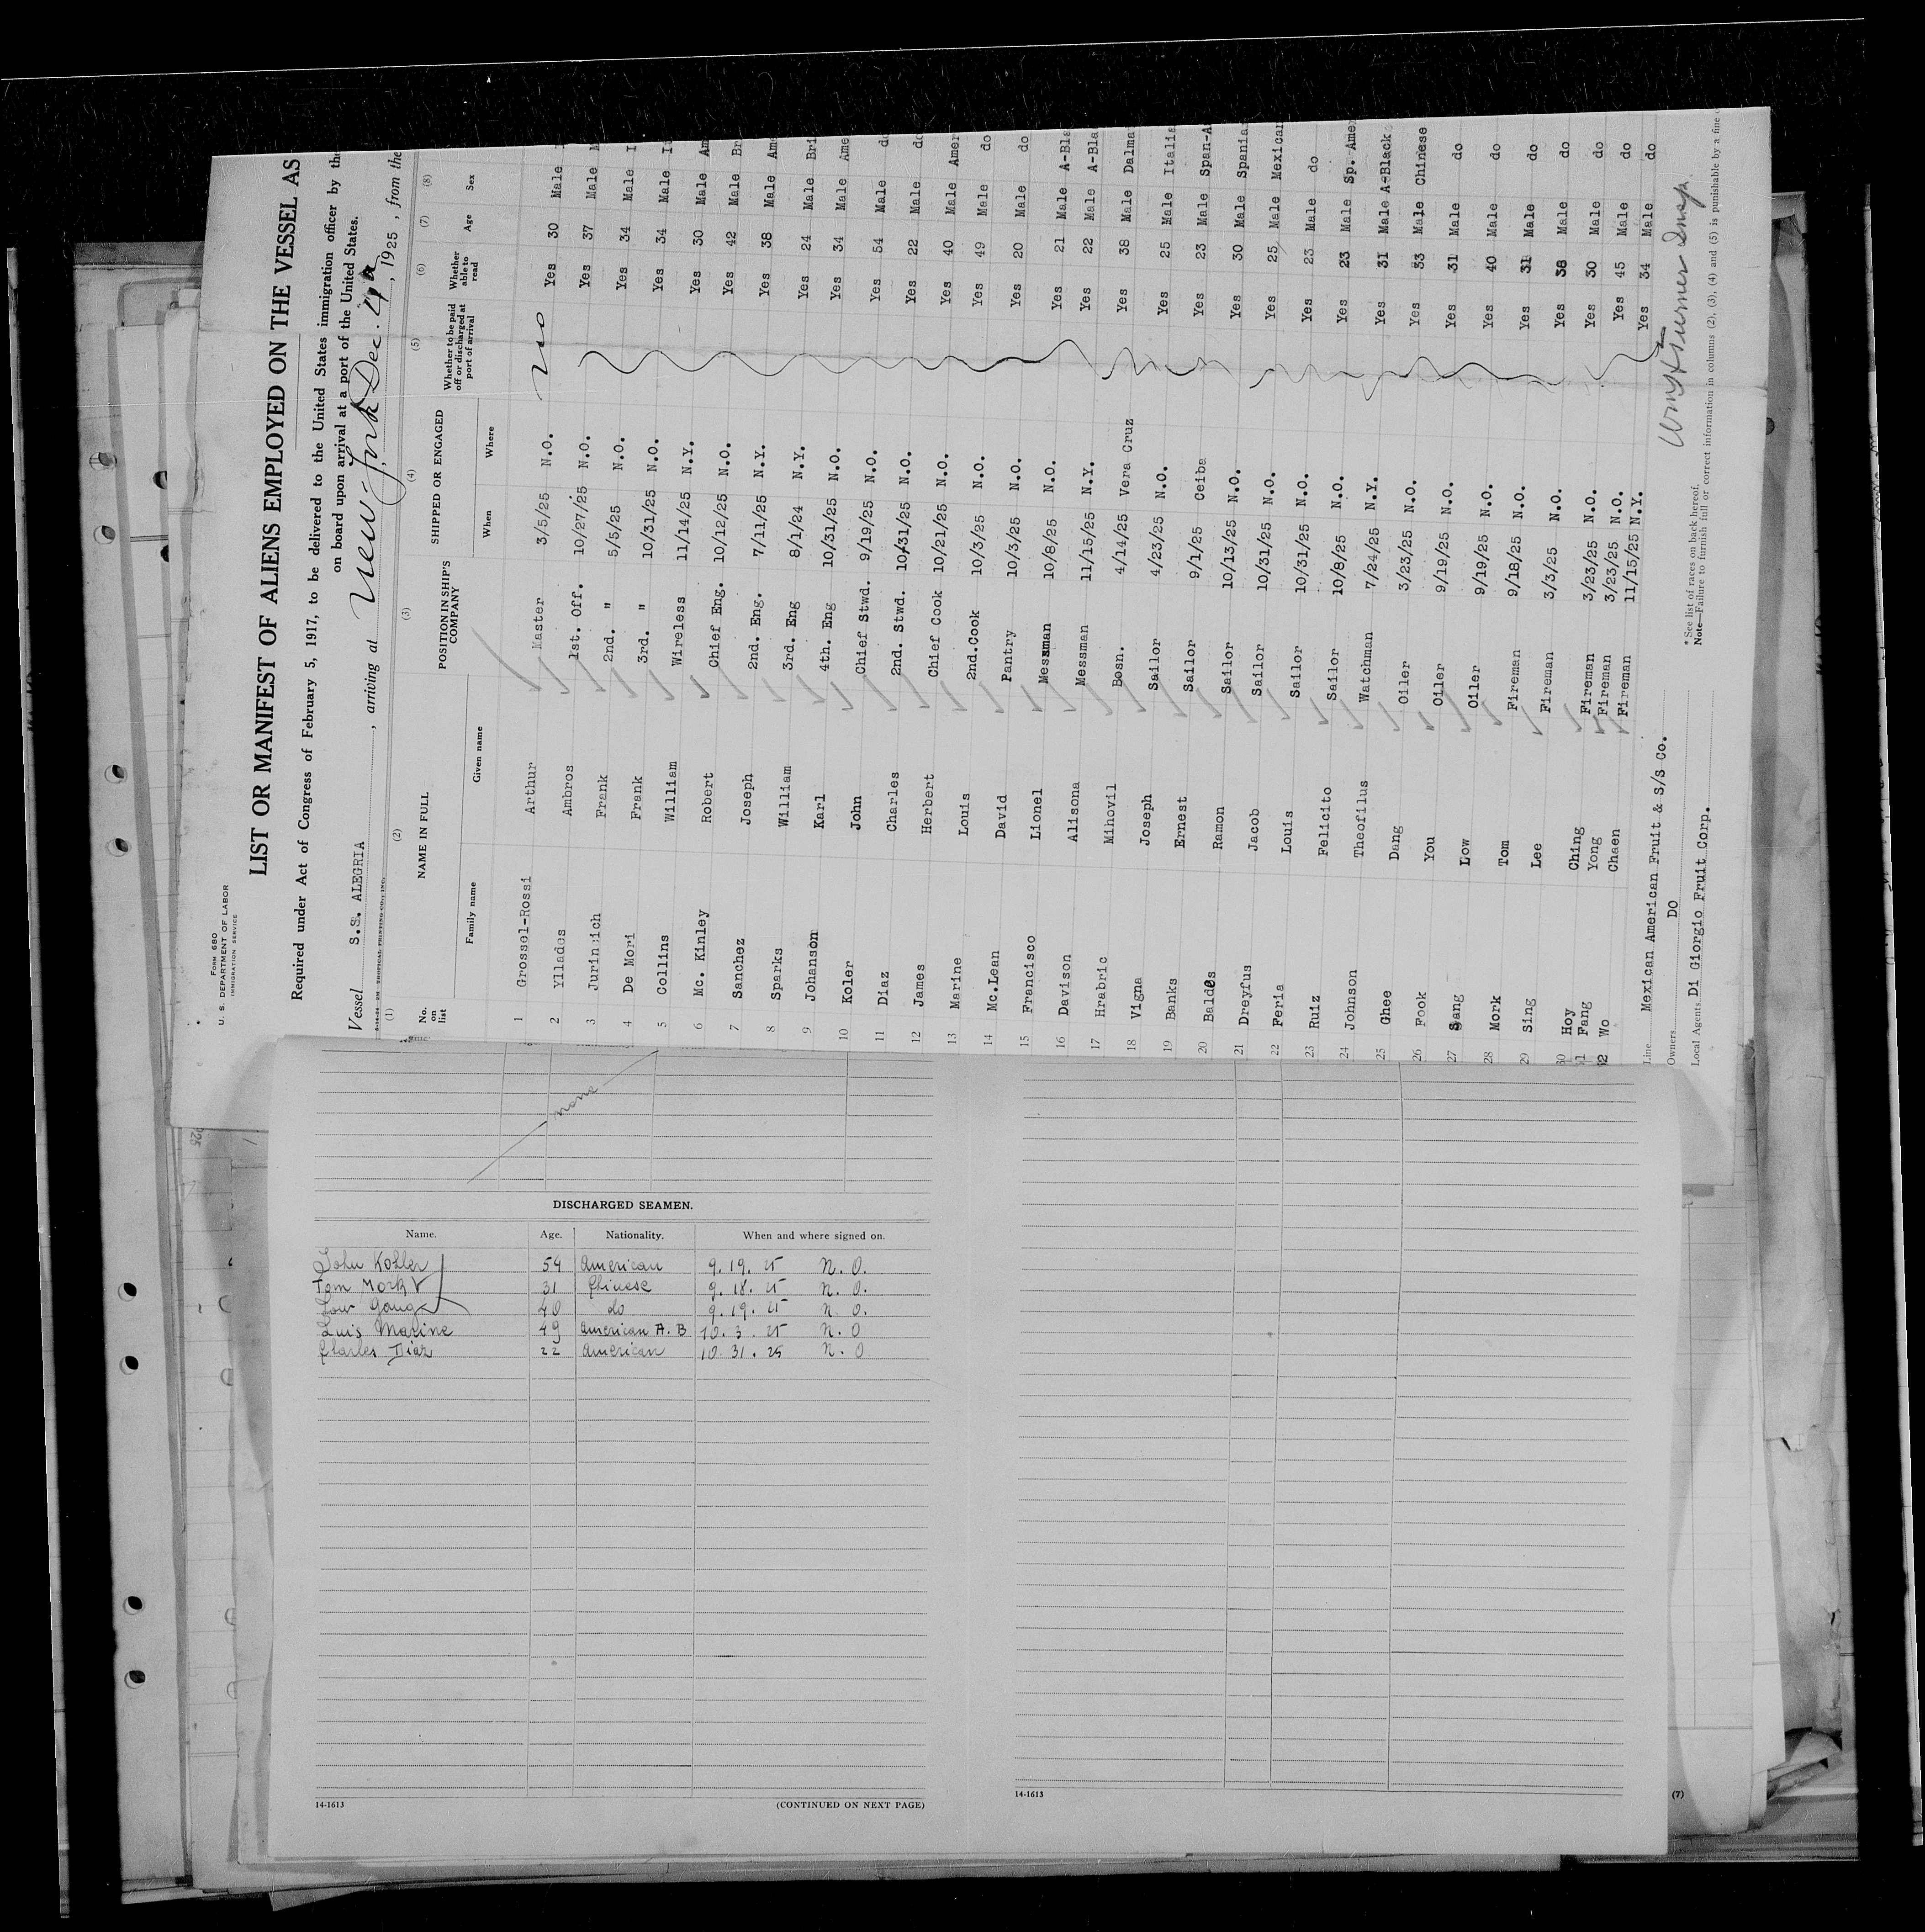 Form 680
U. S. DEPARTMENT OF LABOR
IMMIGRATION SERVICE
LIST OR MANIFEST OF ALIENS EMPLOYED ON THE VESSEL AS
Required under Act of Congress of February 5, 1917, to be delivered to the United States immigration officer by the
on board upon arrival at a port of the United States.
Vessel S.S. ALEGRIA, arriving at New York Dec. 4th, 1925, from the
(1) (2) (3) (4) (5) (6) (7) (8)
No. on list NAME IN FULL POSITION IN SHIP'S COMPANY SHIPPED OR ENGAGED Whether to be paid off or discharged at port of arrival Whether able to read Age Sex
Family name Given name When Where
1 Grossel-Rossi Arthur Master 3/5/25 N.O. no Yes 30 Male
2 Yllades Ambros 1st. Off. 10/27/25 N.O. Yes 37 Male M
3 Frank 2nd. " 5/5/25 N.O. Yes 34 Male I
4 De Mori Frank 3rd. " 10/31/25 N.O. Yes 34 Male It
5 Collins William Wireless 11/14/25 N.Y. Yes 30 Male Am
6 Mc. Kinley Robert Chief Eng. 10/12/25 N.O. Yes 42 Male Br
7 Sanchez Joseph 2nd. Eng. 7/11/25 N.Y. Yes 38 Male Ame
8 Sparks William 3rd. Eng 8/1/24 N.Y. Yes 24 Male Bri
9 Johanson Karl 4th. Eng 10/31/25 N.O. Yes 34 Male Ame
10 Koler John Chief Stwd. 9/19/25 N.O. Yes 54 Male do
11 Diaz Charles 2nd. Stwd. 10/31/25 N.O. Yes 22 Male do
12 James Herbert Chief Cook 10/21/25 N.O. Yes 40 Male Amer
13 Marine Louis 2nd.Cook 10/3/25 N.O. Yes 49 Male do
14 Mc.Lean David Pantry 10/3/25 N.O. Yes 20 Male do
15 Francisco Lionel Messman 10/8/25 N.O. Yes 21 Male A-Bla
16 Davison Alisona Messman 11/15/25 N.Y. Yes 22 Male A-Bla
17 Hrabric Mihovil Bosn. 4/14/25 Vera Cruz Yes 38 Male Dalma
18 Vigna Joseph Sailor 4/23/25 N.O. Yes 25 Male Italia
19 Banks Ernest Sailor 9/1/25 Ceiba Yes 23 Male Span-A
20 Baldes Ramon Sailor 10/13/25 N.O. Yes 30 Male Spania
21 Dreyfus Jacob Sailor 10/31/25 N.O. Yes 25 Male Mexican
22 Feria Louis Sailor 10/31/25 N.O. Yes 23 Male do
23 Ruiz Felicito Sailor 10/8/25 N.O. Yes 23 Male Sp. Amer
24 Johnson Theofilus Watchman 7/24/25 N.Y. Yes 31 Male A-Black
25 Ghee Dang Oiler 3/23/25 N.O. Yes 33 Male Chinese
26 Fook You Oiler 9/19/25 N.O. Yes 31 Male do
27 Sang Low Oiler 9/19/25 N.O. Yes 40 Male do
28 Mork Tom Fireman 9/18/25 N.O. Yes 31 Male do
29 Sing Lee Fireman 3/3/25 N.O. Yes 38 Male do
30 Hoy Ching Fireman 3/23/25 N.O. Yes 30 Male do
31 Fang Yong Fireman 3/23/25 N.O. Yes 45 Male do
32 Wo Chaen Fireman 11/15/25 N.Y. Yes 34 Male do
Line Mexican American Fruit & S/S Co.
Owners DO
Local Agents Di Giorgio Fruit Corp.
* See list of races on back hereof.
Note—Failure to furnish full or correct information in columns (2), (3), (4) and (5) is punishable by a fine
none
DISCHARGED SEAMEN.
Name. Age. Nationality. When and where signed on.
John Kohler 54 American 9. 19. 25 N. O.
Tom Mork 31 Chinese 9. 18. 25 N. O.
Low 40 do 9. 19. 25 N. O.
Luis Marine 49 American A. B 10. 3. 25 N. O
Charles Diaz 22 American 10. 31. 25 N. O
14-1613 (CONTINUED ON NEXT PAGE)
14-1613 (7)